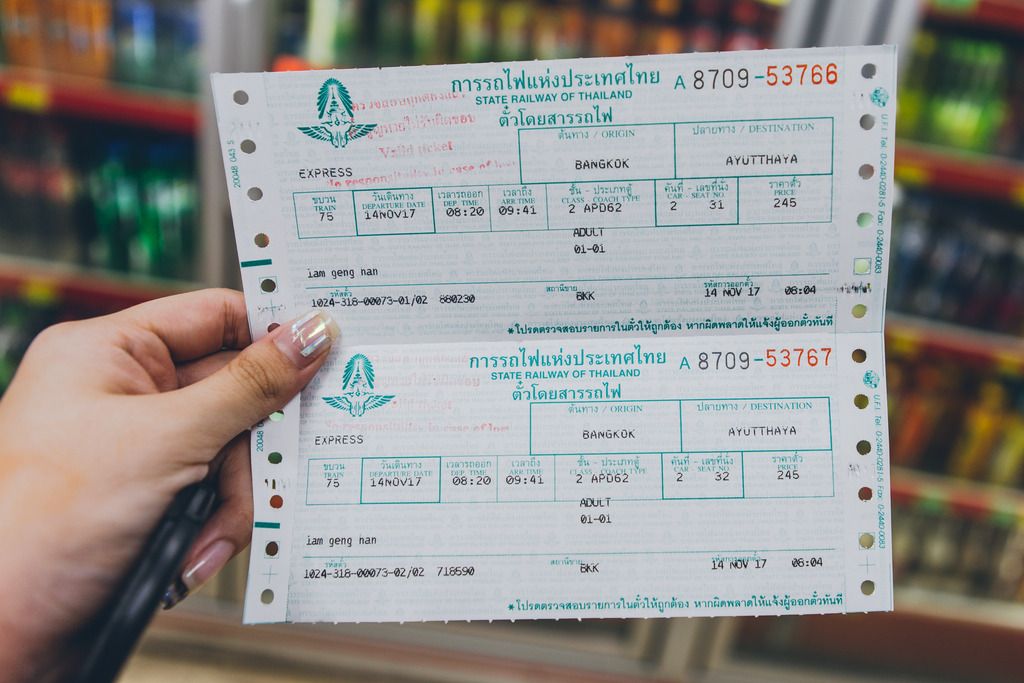 การรถไฟแห่งประเทศไทย A 8709-53766
STATE RAILWAY OF THAILAND
ตั๋วโดยสารรถไฟ
Valid ticket
No responsibility in case of
ต้นทาง / ORIGIN ปลายทาง / DESTINATION
EXPRESS BANGKOK AYUTTHAYA
ขบวน วันเดินทาง เวลารถออก เวลาถึง ชั้น - ประเภทตู้ คันที่ - เลขที่นั่ง ราคาตั๋ว
TRAIN DEPARTURE DATE DEP. TIME ARR.TIME CLASS - COACH TYPE CAR - SEAT NO. PRICE
75 14NOV17 08:20 09:41 2 APD62 2 31 245
ADULT
01-01
iam geng nan
รหัสตั๋ว สถานีขาย รหัสการออกตั๋ว
1024-318-00073-01/02 880230 BKK 14 NOV 17 08:04
*โปรดตรวจสอบรายการในตั๋วให้ถูกต้อง หากผิดพลาดให้แจ้งผู้ออกตั๋วทันที
20048 043 5
U.F.I. Tel. 0-2440-0281-5 Fax. 0-2440-0083
การรถไฟแห่งประเทศไทย A 8709-53767
STATE RAILWAY OF THAILAND
ตั๋วโดยสารรถไฟ
No responsibility in case of
ต้นทาง / ORIGIN ปลายทาง / DESTINATION
EXPRESS BANGKOK AYUTTHAYA
ขบวน วันเดินทาง เวลารถออก เวลาถึง ชั้น - ประเภทตู้ คันที่ - เลขที่นั่ง ราคาตั๋ว
TRAIN DEPARTURE DATE DEP. TIME ARR.TIME CLASS - COACH TYPE CAR - SEAT NO. PRICE
75 14NOV17 08:20 09:41 2 APD62 2 32 245
ADULT
01-01
iam geng nan
รหัสตั๋ว สถานีขาย รหัสการออกตั๋ว
1024-318-00073-02/02 718590 BKK 14 NOV 17 08:04
*โปรดตรวจสอบรายการในตั๋วให้ถูกต้อง หากผิดพลาดให้แจ้งผู้ออกตั๋วทันที
20048
U.F.I. Tel. 0-2440-0281-5 Fax. 0-2440-0083